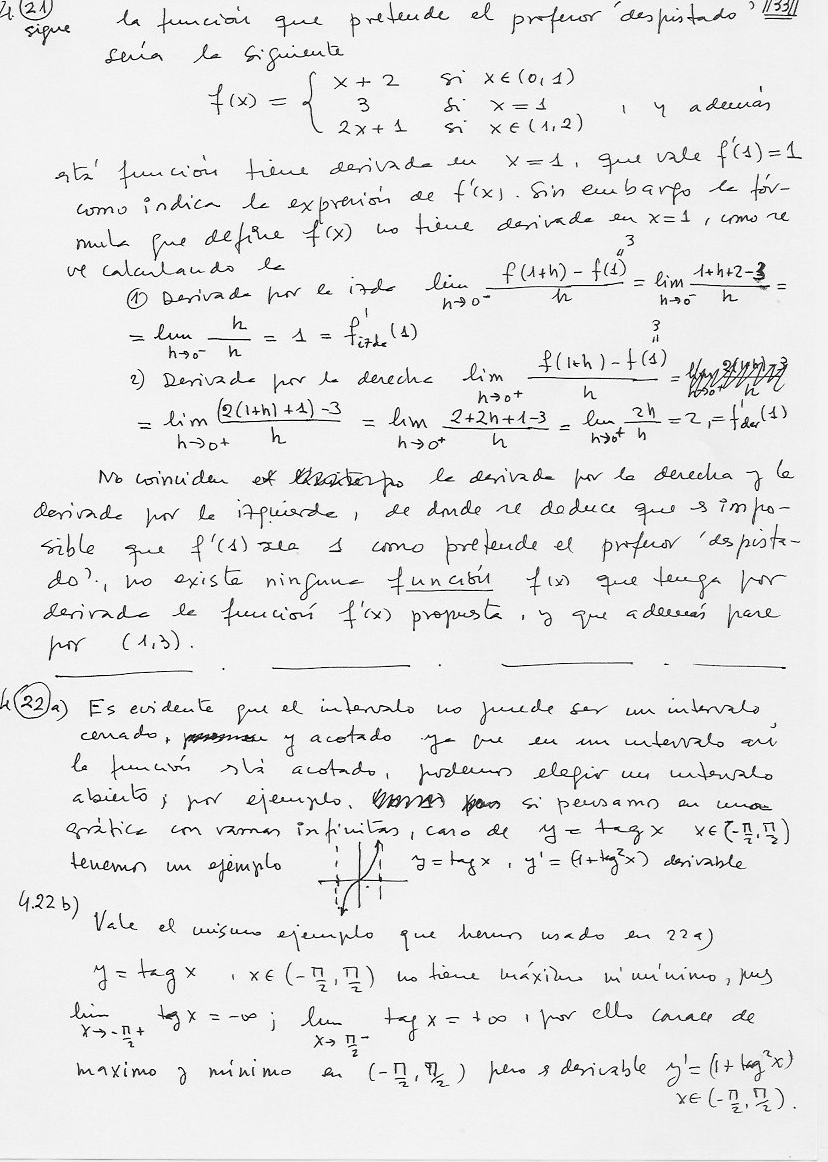 4. (21) la función que pretende el profesor 'despistado' ||33||
sigue
sería la siguiente
f(x) = { x + 2 si x∈(0,1)
3 si x = 1 , y además
2x + 1 si x∈(1,2)
está función tiene derivada en x = 1, que vale f'(1) = 1
como indica la expresión de f'(x). Sin embargo la fór-
mula que define f'(x) no tiene derivada en x=1, como se
ve calculando la
① Derivada por la izda lim h→0⁻ (f(1+h) - f(1))/h = lim h→0⁻ (1+h+2-3)/h =
= lim h→0⁻ h/h = 1 = f'izda(1)
2) Derivada por la derecha lim h→0⁺ (f(1+h) - f(1))/h =
= lim h→0⁺ ((2(1+h)+1)-3)/h = lim h→0⁺ (2+2h+1-3)/h = lim h→0⁺ 2h/h = 2, = f'der(1)
No coinciden la derivada por la derecha y la
derivada por la izquierda, de donde se deduce que es impo-
sible que f'(1) sea 1 como pretende el profesor 'despista-
do', no existe ninguna función f(x) que tenga por
derivada la función f'(x) propuesta, y que además pase
por (1,3).
4. (22) a) Es evidente que el intervalo no puede ser un intervalo
cerrado, y acotado ya que en un intervalo así
la función está acotado, podemos elegir un intervalo
abierto; por ejemplo, si pensamos en una
gráfica con ramas infinitas, caso de y = tag x x∈(-π/2, π/2)
tenemos un ejemplo y = tag x, y' = (1+tg²x) derivable
4.22 b)
Vale el mismo ejemplo que hemos usado en 22a)
y = tag x , x∈(-π/2, π/2) no tiene máximo ni mínimo, pues
lim x→-π/2+ tg x = -∞ ; lim x→π/2⁻ tag x = +∞, por ello carece de
maximo y mínimo en (-π/2, π/2) pero es derivable y' = (1+tag²x)
x∈(-π/2, π/2).